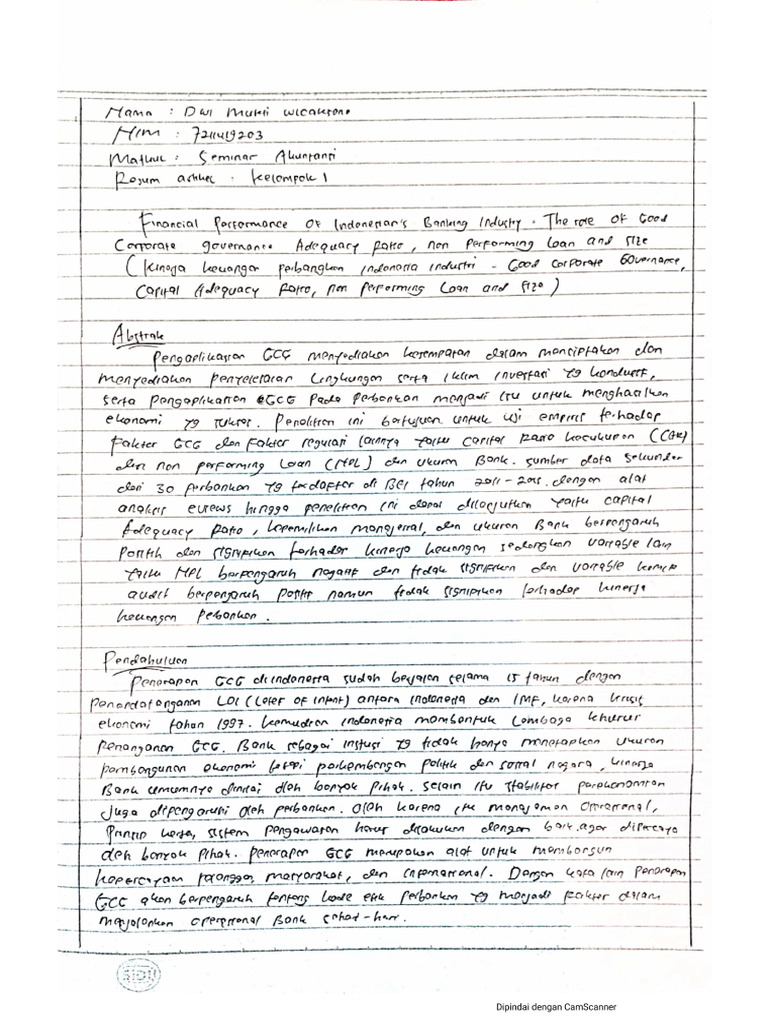 Nama : Dwi Mukti Wicaksono
NIM : 7211419203
Matkul : Seminar Akuntansi
Resum artikel . Kelompok 1
Financial Performance Of Indonesian's Banking Industry . The role of Good
Corporate governance Adequacy Ratio , non Performing Loan and size
( kinerja keuangan perbangkan indonesia industri - Good corporate Governance,
Capital Adequacy Ratio, non performing Loan and size )
Abstrak
Pengaplikasian GCG menyediakan kesempatan dalam menciptakan dan
menyediakan penyelerasan Lingkungan serta iklim investasi yg konduktif,
serta pengaplikasian GCG pada perbankan menjadi isu untuk menghasilkan
ekonomi yg sukses. Penelitian ini bertujuan untuk uji empiris terhadap
Faktor GCG dan faktor regulasi lainnya yaitu capital Rasio kecukupan (CAR)
dan non performing Loan (NPL) dan ukuran Bank. sumber data sekunder
dari 30 perbankan yg terdaftar di BEI tahun 2011 - 2015. dengan alat
analisis eviews hingga penelitian ini dapat dilanjutkan yaitu capital
Adequacy Ratio , kepemilikan manajerial, dan ukuran Bank berpengaruh
Positif dan signifikan terhadap kinerja keuangan sedangkan variable lain
yaitu NPL berpengaruh negatif dan tidak signifikan dan variable komite
audit berpengaruh positif namun tidak signifikan terhadap kinerja
keuangan Perbankan .
Pendahuluan
Penerapan GCG di indonesia sudah berjalan selama 15 tahun dengan
penandatanganan LOI (Leter of intent) antara indonesia dan IMF, karena krisis
ekonomi tahun 1997. kemudian indonesia membentuk Lembaga khusus
penanganan GCG. Bank sebagai instusi yg tidak hanya menetapkan ukuran
pembangunan ekonomi tetapi perkembangan politik dan sosial negara, kinerja
Bank umumnya dinilai oleh banyak pihak. selain itu stabilitas perekonomian
juga dipengaruhi oleh perbankan. Oleh karena itu manajemen operasional,
Prinsip kerja, sistem pengawasan harus dilakukan dengan baik agar dipercaya
oleh banyak pihak. penerapan GCG merupakan alat untuk membangun
kepercayaan pelanggan, masyarakat, dan internasional. Dengan kata lain penerapan
GCG akan berpengaruh tentang kode etik perbankan yg menjadi faktor dalam
menjalankan operasional Bank sehari-hari.
SIDU
Dipindai dengan CamScanner